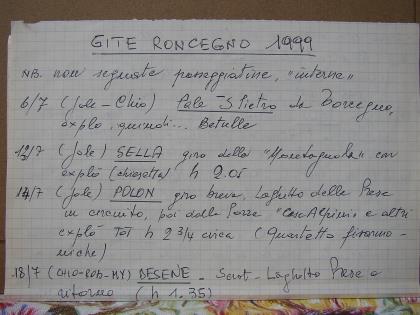 GITE RONCEGNO 1999
NB. non segnate passeggiatine, "interne"
6/7 (Jole - Chio) Pale S Pietro da Torcegno,
explò, quindi... Betulle
12/7 (Jole) SELLA giro della con
explò h 2.05
14/7 (Jole) POLON giro breve, Laghetto delle Prese
in circuito, poi dalle Pozze "Casa Alpinis" e altri
explò Tot h 2 3/4 circa (Quartetto fisarmo-
niche)
18/7 (CHIO-ROB-MY) DESENE - Serot - Laghetto Prese e
ritorno (h 1.35)